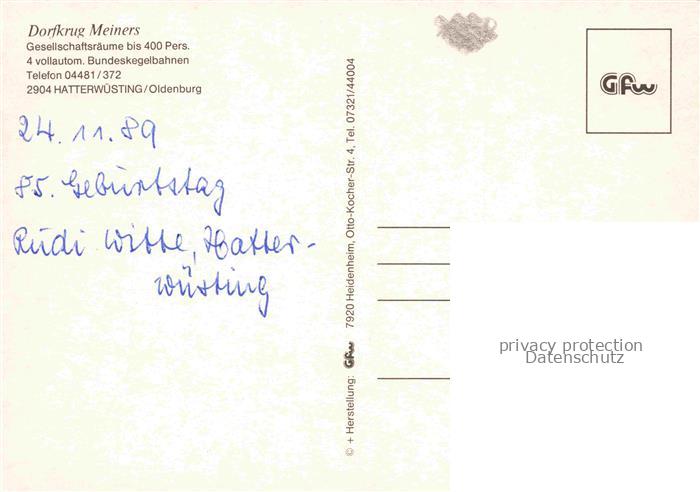 Dorfkrug Meiners
Gesellschaftsräume bis 400 Pers.
4 vollautom. Bundeskegelbahnen
Telefon 04481/372
2904 HATTERWÜSTING/Oldenburg
24. 11. 89
85. Geburtstag
Rudi Witte, Hatter-
wüsting
© + Herstellung: Gfw 7920 Heidenheim, Otto-Kocher-Str. 4, Tel. 07321/44004
Gfw
privacy protection
Datenschutz